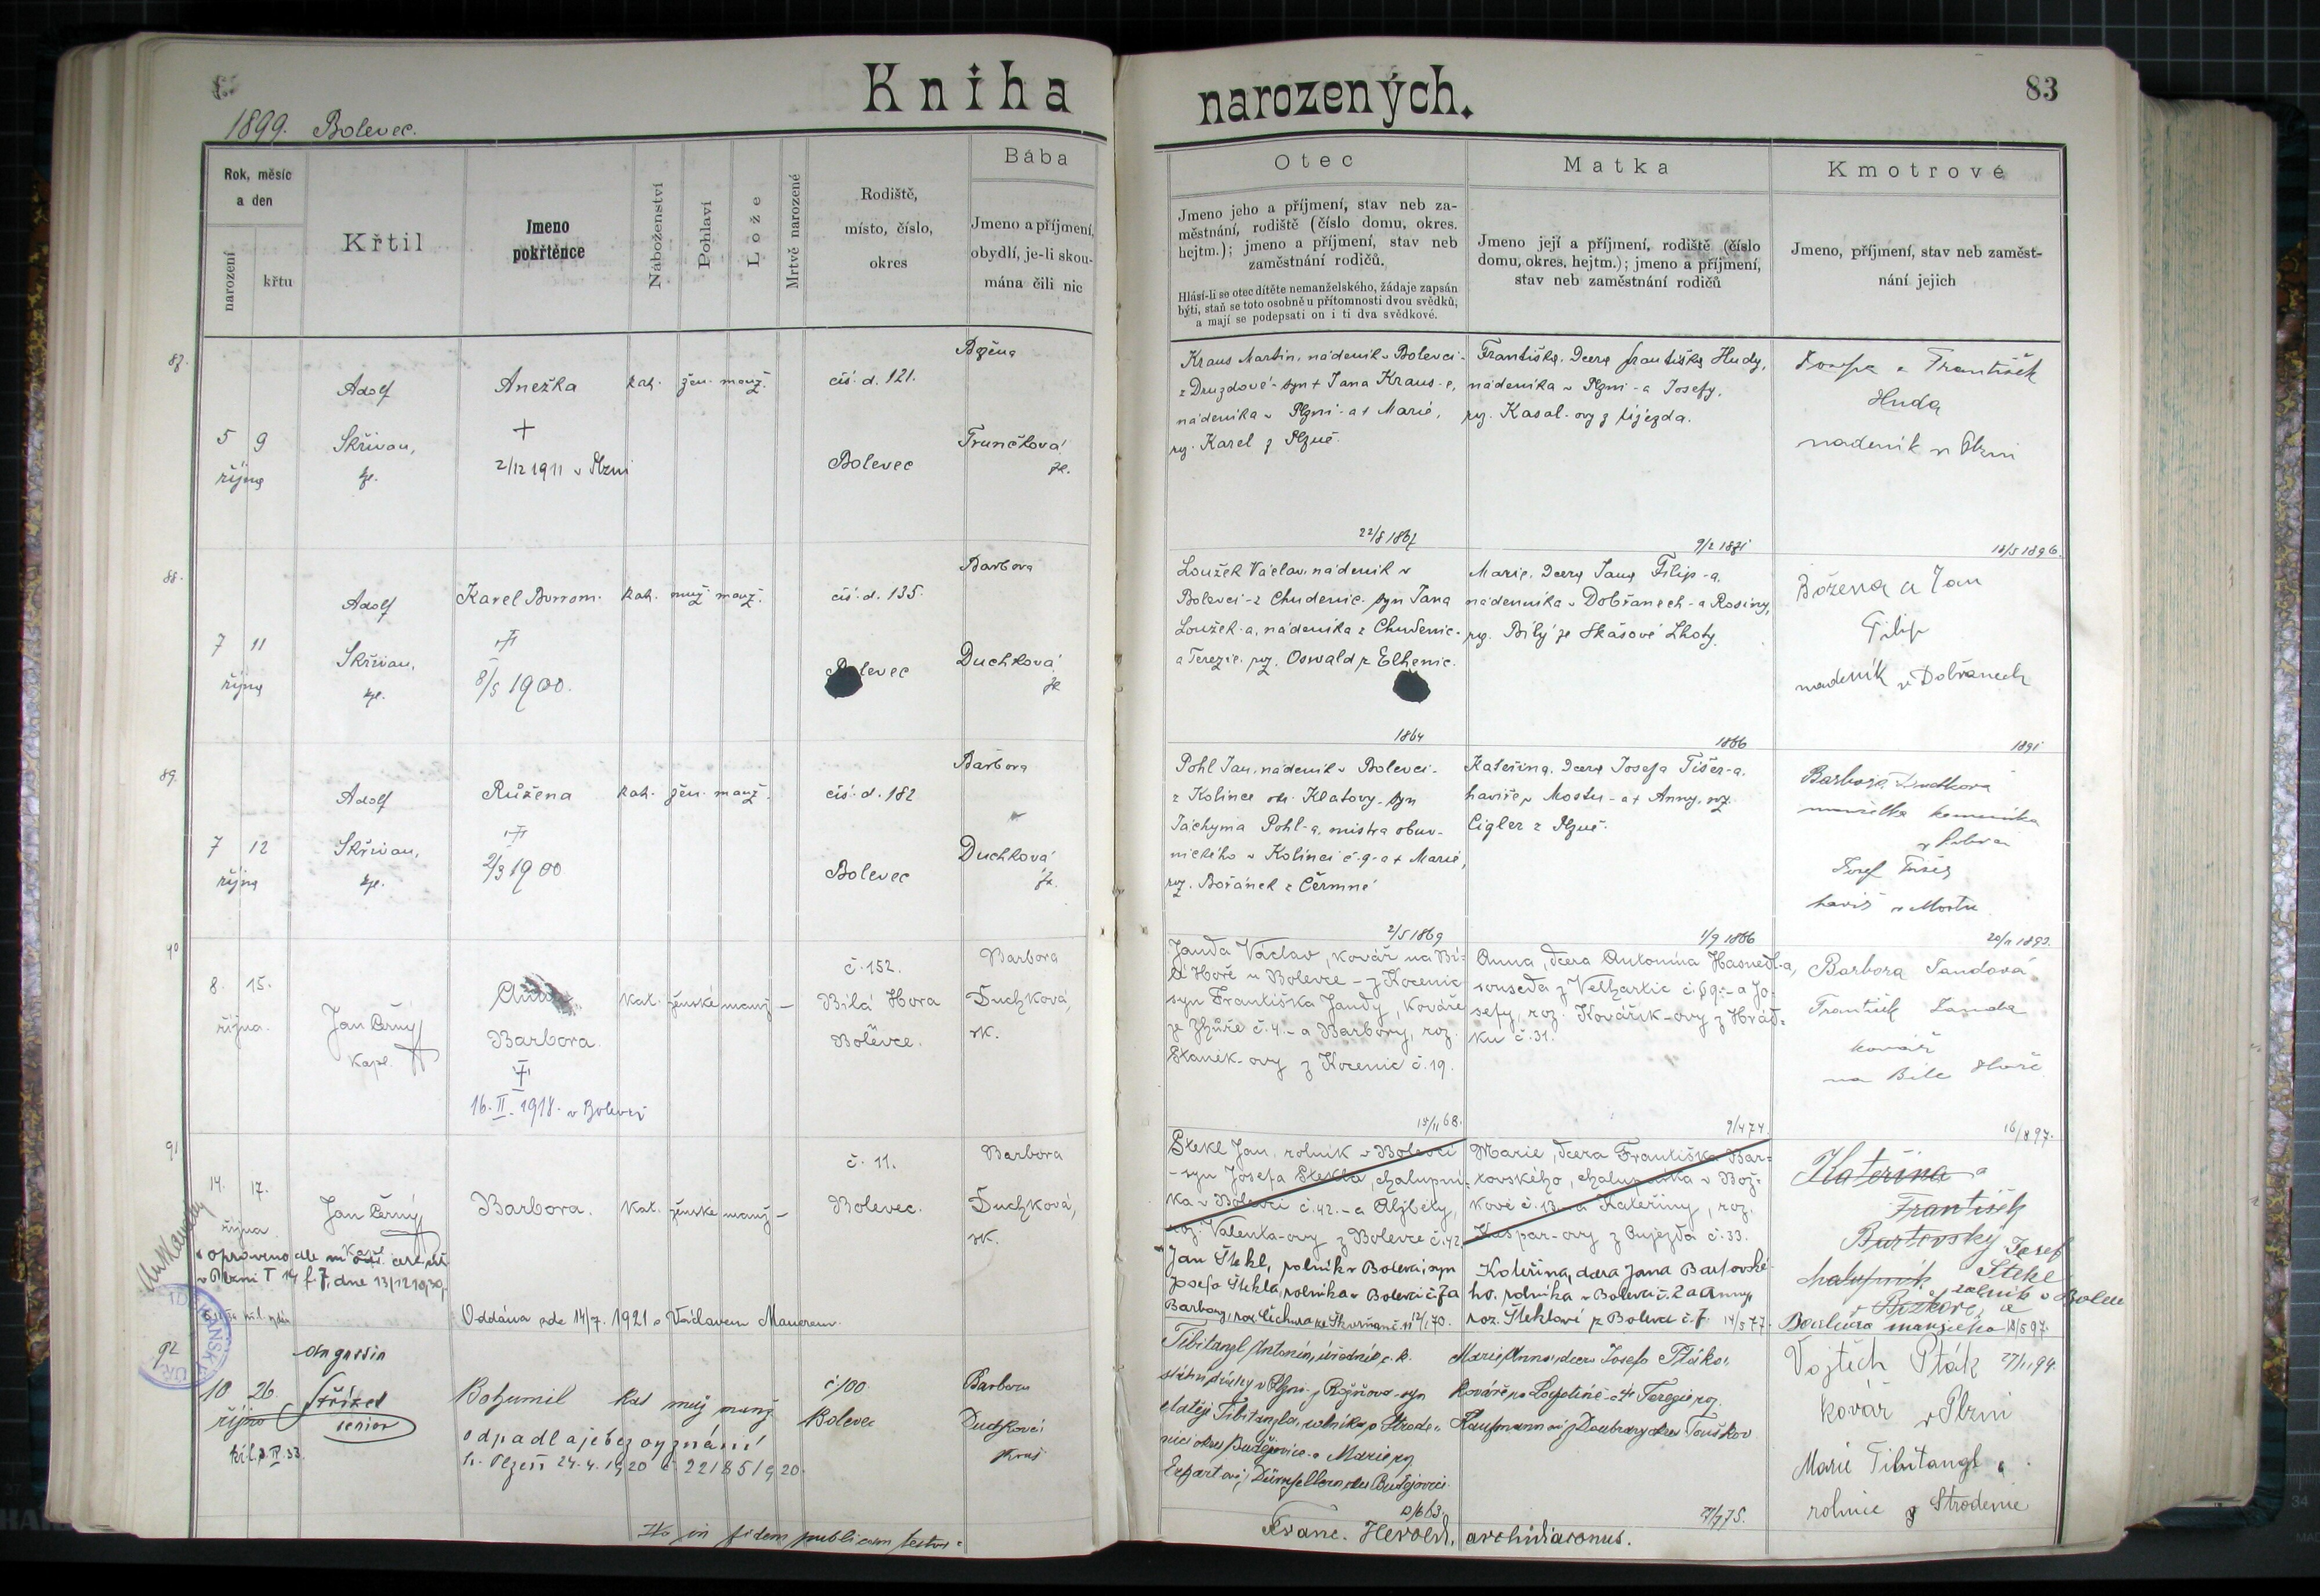 Kniha narozených.
83
1899. Bolevec.
Rok, měsíc
a den
narození
křtu
Křtil
Jmeno
pokřtěnce
Náboženství
Pohlaví
Lože
Mrtvě narozené
Rodiště,
místo, číslo,
okres
Bába
Jmeno a příjmení,
obydlí, je-li skou-
mána čili nic
Otec
Jmeno jeho a příjmení, stav neb za-
městnání, rodiště (číslo domu, okres.
hejtm.); jmeno a příjmení, stav neb
zaměstnání rodičů.
Hlásí-li se otec dítěte nemanželského, žádaje zapsán
býti, staň se toto osobně u přítomnosti dvou svědků,
a mají se podepsati on i ti dva svědkové.
Matka
Jmeno její a příjmení, rodiště (číslo
domu, okres, hejtm.); jmeno a příjmení,
stav neb zaměstnání rodičů
Kmotrové
Jmeno, příjmení, stav neb zaměst-
nání jejich
87.
5 9
října
Adolf
Skřivan,
kp.
Anežka
+
2/12 1911 v Plzni
kat. žen. manž.
čís. d. 121.
Bolevec
Božena
Trunčková
zk.
Kraus Martin, nádeník v Bolevci-
z Druzdové - syn + Jana Kraus-a,
nádeníka v Plzni - a + Marie,
roz. Karel z Plzně.
22/8 1867
Františka, dcera Františka Hudy,
nádeníka v Plzni - a Josefy,
roz. Kasal-ovy z Újezda.
9/2 1871
Josefa a František
Huda
nadeník v Plzni
18/5 1896.
88.
7 11
října
Adolf
Skřivan,
kp.
Karel Borrom.
+
8/5 1900.
kat. muž. manž.
čís. d. 135.
Bolevec
Barbora
Duchková
zk
Loužek Václav, nádeník v
Bolevci - z Chudenic - syn Jana
Loužek-a, nádeníka z Chudenic-
a Terezie, roz. Oswald z Elhenic.
1864
Marie, dcera Jana Filip-a,
nádenníka v Dobřanech - a Rosiny,
roz. Bílý ze Skášové Lhoty.
1866
Božena a Jan
Filip
nadeník v Dobřanech
1891
89.
7 12
října
Adolf
Skřivan,
kp.
Růžena
+
2/3 1900
kat. žen. manž.
čís. d. 182
Bolevec
Barbora
Duchková
zk.
Pohl Jan, nádeník v Bolevci-
z Kolince okr. Klatovy - syn
Jáchyma Pohl-a, mistra obuv-
nického v Kolinci č. 9 - a + Marie,
roz. Bořánek z Čermné
2/5 1869
Kateřina, dcera Josefa Tišer-a,
havíře v Mostu - a + Anny, roz.
Cigler z Plzně.
1/9 1866
Barbora Duchková
manželka kameníka
Josef Tišer
havíř v Mostu
20/11 1893.
90
8. 15.
října.
Jan Černý
kapl.
Barbora.
+
16. II. 1918. v Bolevci
kat. ženské manž. —
č. 152.
Bílá Hora
Bolevce.
Barbora
Duchková,
zk.
Janda Václav, kovář na Bí-
lé Hoře u Bolevce - z Kocenic
syn Františka Jandy, kováře
ze Zhůře č. 4. - a Barbory, roz.
Staněk-ovy z Kocenic č. 19.
15/11 68.
Anna, dcera Antonína Hasnedl-a,
souseda z Velhartic č. 69. - a Jo-
sefy, roz. Kovářík-ovy z Hrád-
ku č. 31.
9/4 74.
Barbora Jandová
František Janda
kovář
na Bílé Hoře
16/8 97.
91
14. 17.
října.
Jan Černý
kapl.
Barbora.
kat. ženské manž. —
č. 11.
Bolevec.
Barbora
Duchková,
zk.
Oddána zde 14/7. 1921 s Václavem Mauerem.
Štekl Jan, rolník v Bolevci
- syn Josefa Štekla, chalupní-
ka v Bolevci č. 42. - a Alžběty,
roz. Valenta-ovy z Bolevce č. 42.
Jan Štekl, rolník v Bolevci, syn
Josefa Štekla, rolníka v Bolevci č. 7 a
Marie, dcera Františka Bar-
tovského, chalupníka v Bož-
kově č. 13. - a Kateřiny, roz.
Kašpar-ovy z Oujezda č. 33.
Kateřina, dcera Jana Bartovské-
ho, rolníka v Bolevci č. 2 a Anny,
roz. Šteklové z Bolevce č. 7. 14/5 77.
Kateřina a
František
Bartovský
chalupník
Božkově
Josef
Štekl
rolník v Bolevci
Barbora manželka 18/5 97.
92
10 26
října
Augustin
Střízek
senior
Bohumil
kat muž manž
odpadl a je bez vyznání
h. Plzeň 24. 4. 1920 č. 22185/920.
č 100
Bolevec
Barbora
Duchková
Tibitanzl Antonín, úředník c. k.
13/6 63.
Marie Anna, dcera Josefa Ptáka,
27/7 75.
Vojtěch Pták 27/11 94.
kovář v Plzni
Marie Tibitanzl
rolnice z Strodenic
Ita in fidem publicam testor:
Franc. Herold, archidiaconus.